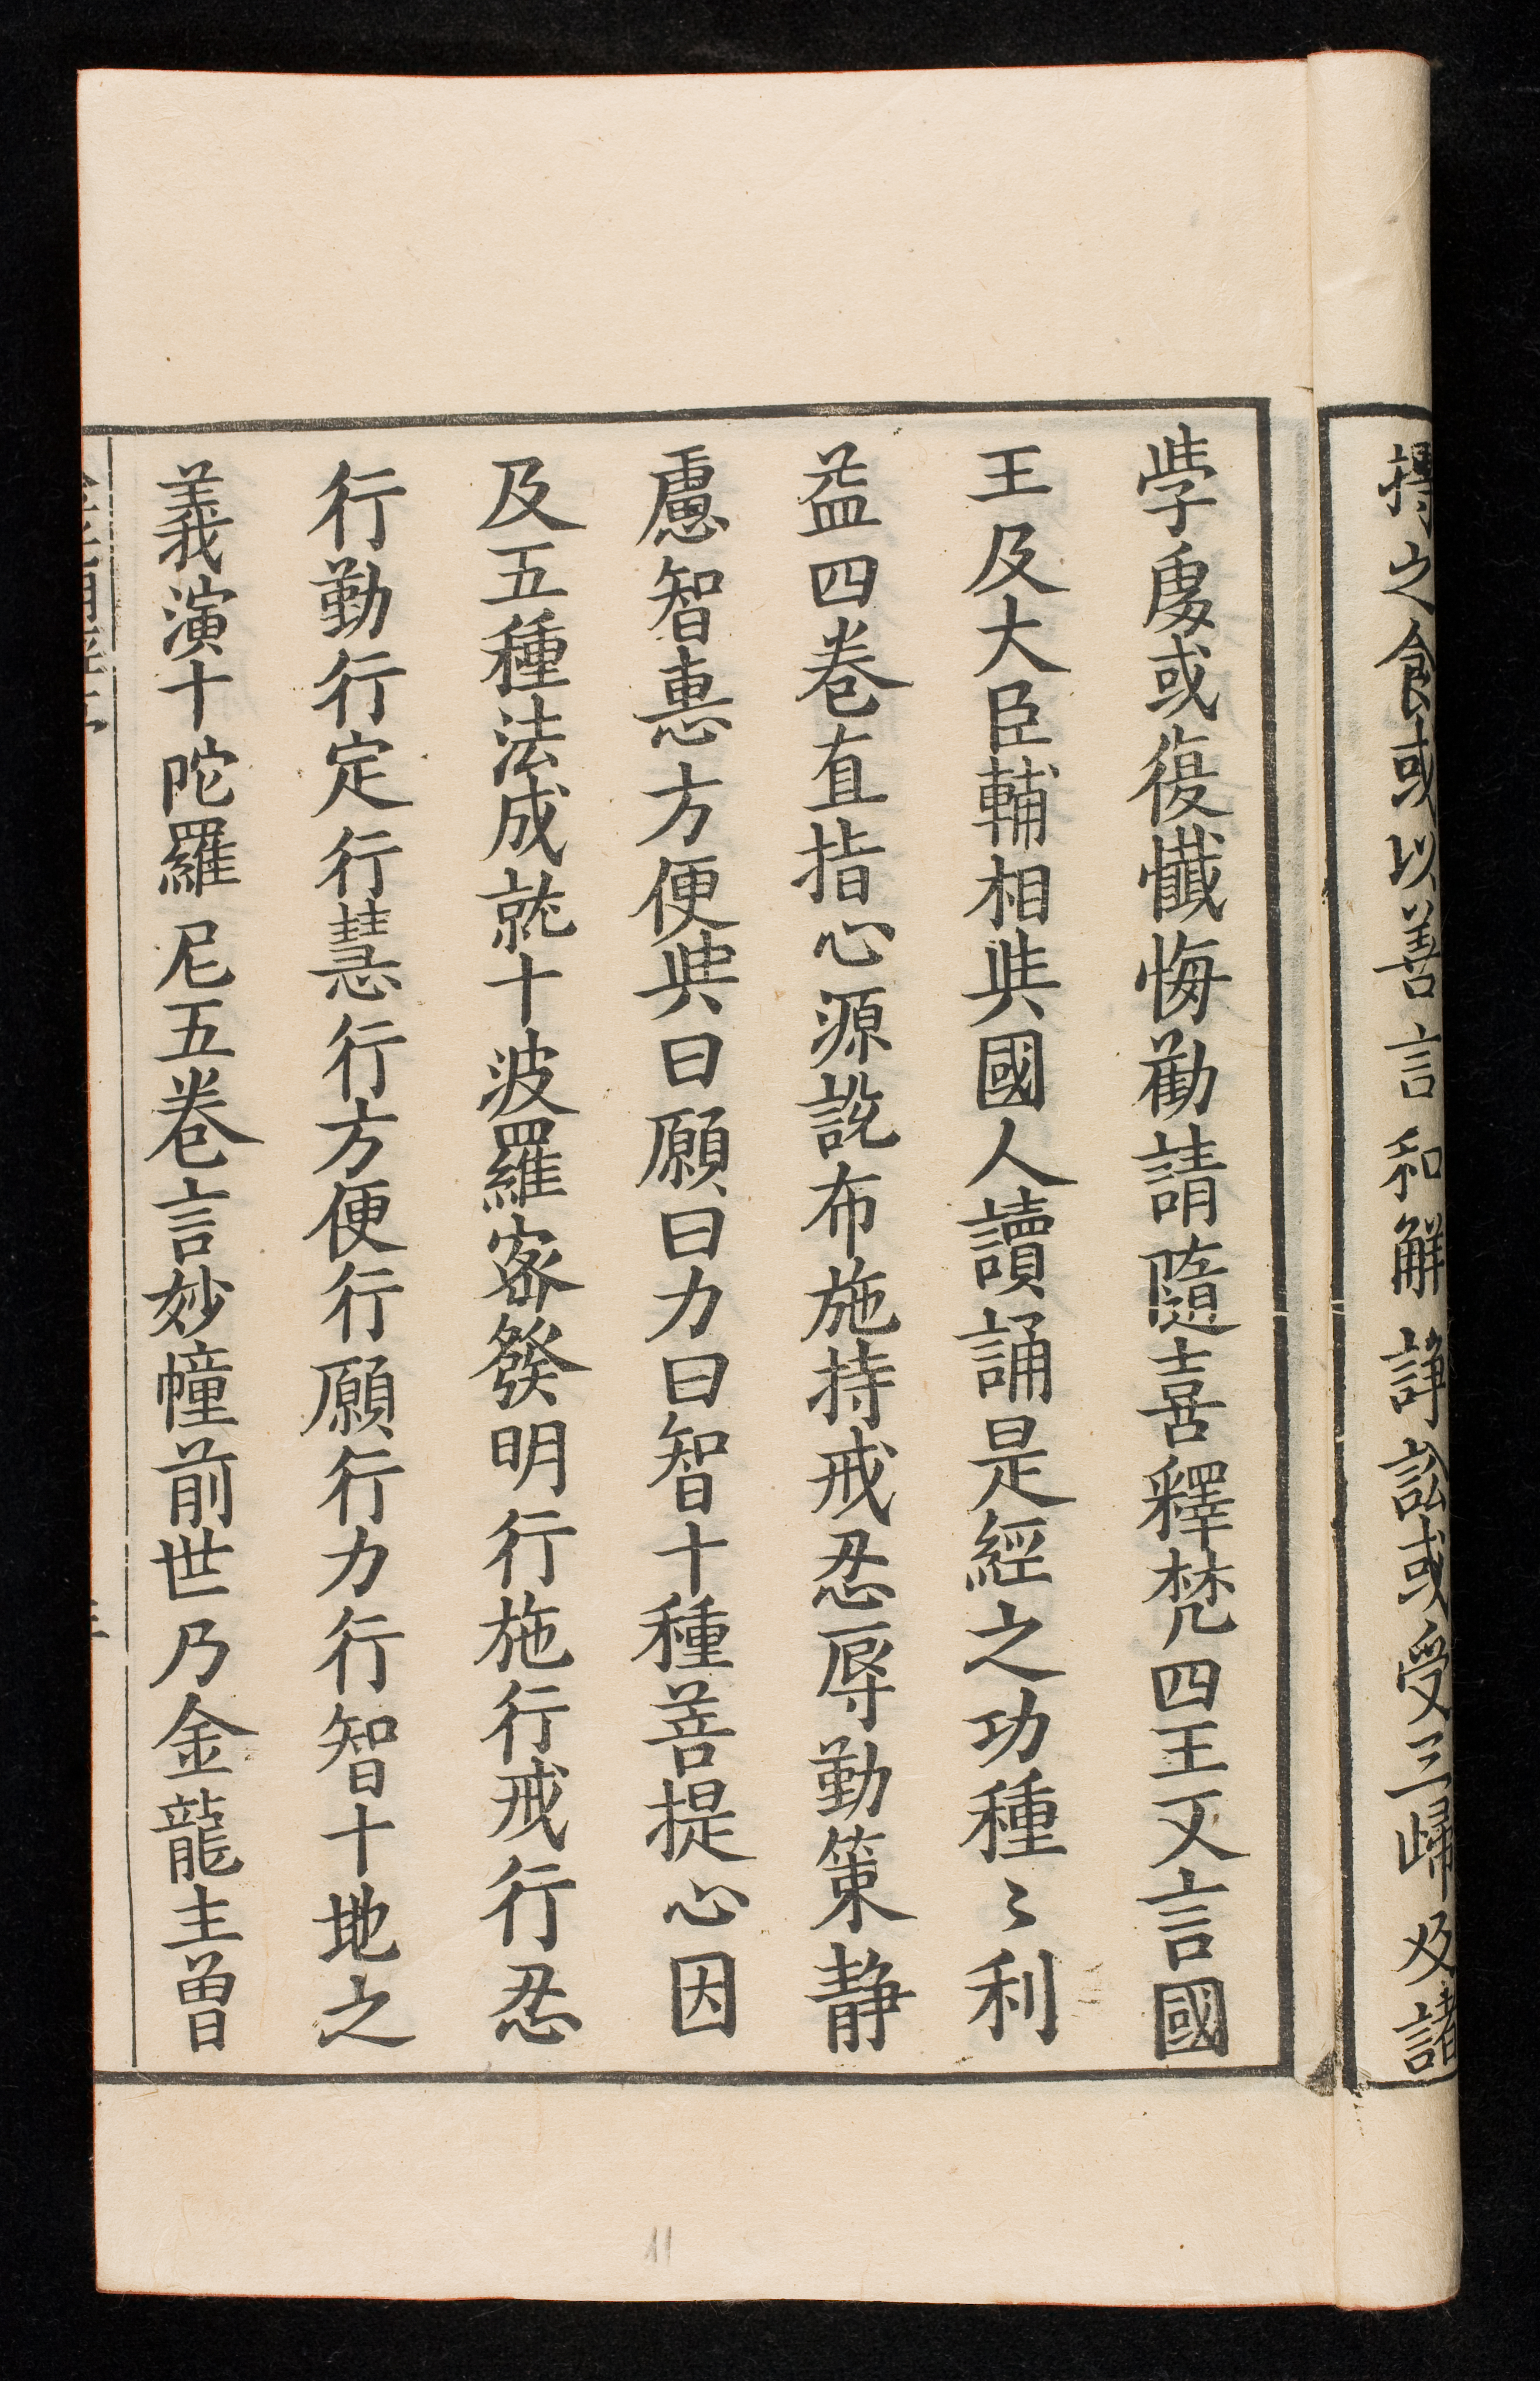 摶之食或以善言和解諍訟或受三歸及諸
學處或復懺悔勸請隨喜釋梵四王又言國
王及大臣輔相與國人讀誦是經之功種〻利
益四卷直指心源說布施持戒忍辱勤策静
慮智惠方便與曰願曰力曰智十種菩提心因
及五種法成就十波羅密發明行施行戒行忍
行勤行定行慧行方便行願行力行智十地之
義演十陀羅尼五卷言妙幢前世乃金龍主曾